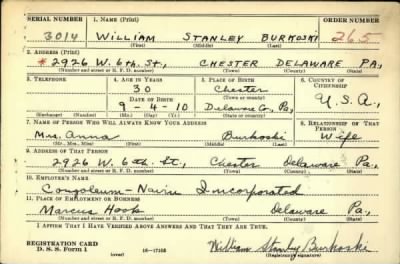 SERIAL NUMBER 1. NAME (Print) ORDER NUMBER
3014 WILLIAM STANLEY BURKOSKI 265
(First) (Middle) (Last)
2. ADDRESS (Print)
* 2926 W. 6th. St., CHESTER DELAWARE PA,
(Number and street or R. F. D. number) (Town) (County) (State)
3. TELEPHONE 4. AGE IN YEARS 5. PLACE OF BIRTH 6. COUNTRY OF CITIZENSHIP
30 Chester
DATE OF BIRTH (Town or county)
9-4-10 Delaware Co., Pa, U.S.A,
(Exchange) (No.) (Mo.) (Day) (Yr.) (State or country)
7. NAME OF PERSON WHO WILL ALWAYS KNOW YOUR ADDRESS 8. RELATIONSHIP OF THAT PERSON
Mrs. Anna Burkoski Wife
(Mr., Mrs., Miss) (First) (Middle) (Last)
9. ADDRESS OF THAT PERSON
2926 W. 6th. St., Chester Delaware Pa.
(Number and street or R. F. D. number) (Town) (County) (State)
10. EMPLOYER'S NAME
Congoleum-Nairn Incorporated
11. PLACE OF EMPLOYMENT OR BUSINESS
Marcus Hook Delaware Pa,
(Number and street or R. F. D. number) (Town) (County) (State)
I AFFIRM THAT I HAVE VERIFIED ABOVE ANSWERS AND THAT THEY ARE TRUE.
REGISTRATION CARD
D. S. S. Form 1 (over) 16-17105 William Stanley Burkoski
(Registrant's signature)